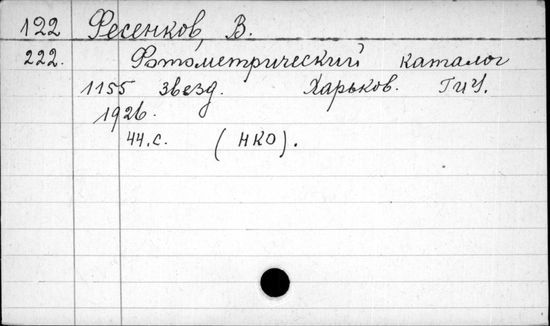 122 Фесенков, В.
222. Фотометрический каталог
1155 звезд. Харьков. ГИУ.
1926.
44.с. (НКО).